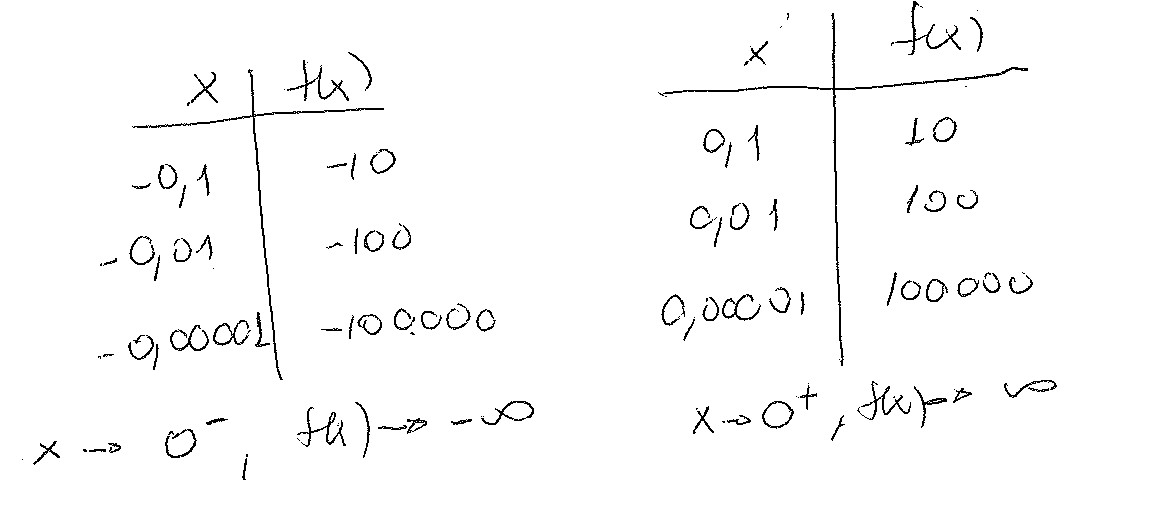 x f(x)
-0,1 -10
-0,01 -100
-0,00001 -100.000
x → 0⁻, f(x) → -∞
x f(x)
0,1 10
0,01 100
0,00001 100000
x → 0⁺, f(x) → ∞